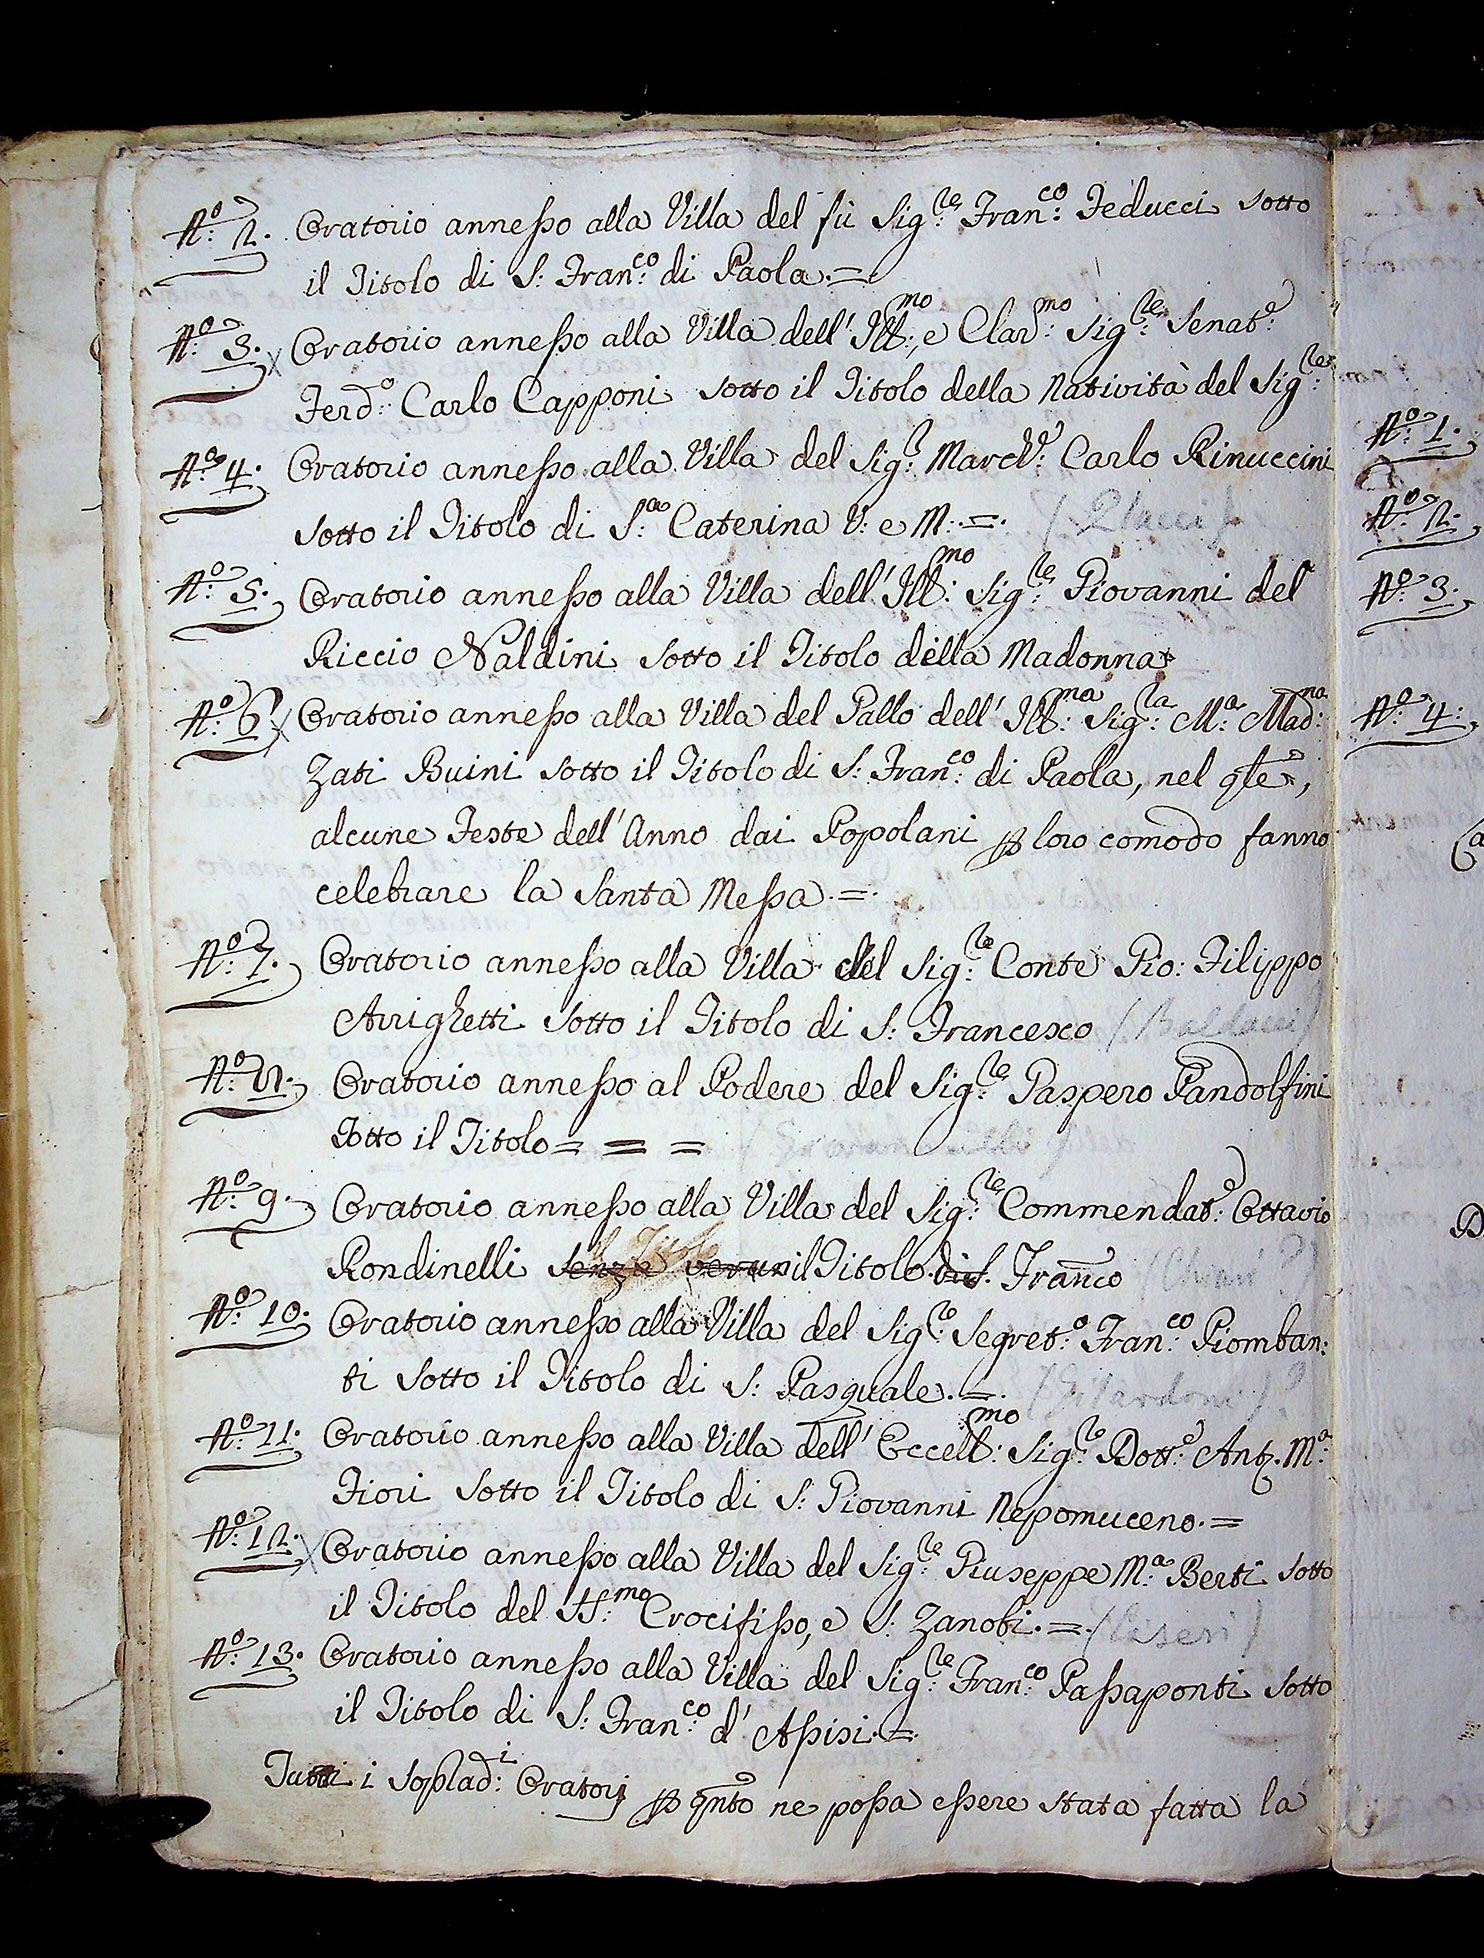 N.º 2. Oratorio annesso alla Villa del fù Sig.re Fran.co Feducci sotto
il Titolo di S: Fran.co di Paola.=
N.º 3. Oratorio annesso alla Villa dell' Ill.mo, e Clar.mo Sig.re Senat.e
Ferd.o Carlo Capponi sotto il Titolo della Natività del Sig.re
N.º 4. Oratorio annesso alla Villa del Sig.r March.e Carlo Rinuccini
sotto il Titolo di S.a Caterina V: e M:.=.
N.º 5. Oratorio annesso alla Villa dell' Ill.mo Sig.re Giovanni del
Riccio Naldini sotto il Titolo della Madonna
N.º 6. Oratorio annesso alla Villa del Gallo dell' Ill.ma Sig.ra M.a Mad.na
Zati Buini sotto il Titolo di S: Fran.co di Paola, nel qle,
alcune Feste dell' Anno dai Popolani p loro comodo fanno
celebrare la Santa Messa.=.
N.º 7. Oratorio annesso alla Villa del Sig.re Conte Gio: Filippo
Arrighetti sotto il Titolo di S: Francesco (Baldacci)
N.º 8. Oratorio annesso al Podere del Sig.re Gaspero Pandolfini
Sotto il Titolo = = =
N.º 9. Oratorio annesso alla Villa del Sig.re Commendat.e Ottavio
Rondinelli senza verun il Titolo di S. Franco
N.º 10. Oratorio annesso alla Villa del Sig.re Segret.o Fran.co Piomban:
ti sotto il Titolo di S: Pasquale.=.
N.º 11. Oratorio annesso alla Villa dell' Eccell.mo Sig.re Dott.e Ant. M.a
Fiori sotto il Titolo di S: Giovanni Nepomuceno.=
N.º 12. Oratorio annesso alla Villa del Sig.re Giuseppe M.a Berti sotto
il Titolo del SS.mo Crocifisso, e S: Zanobi.=. (Ciseri)
N.º 13. Oratorio annesso alla Villa del Sig.re Fran.co Passaponti sotto
il Titolo di S: Fran.co d' Assisi.=
Tutti i Soplad.i Oratorj p qnto ne possa essere stata fatta la
N.º 1.
N.º 2.
N.º 3.
N.º 4.